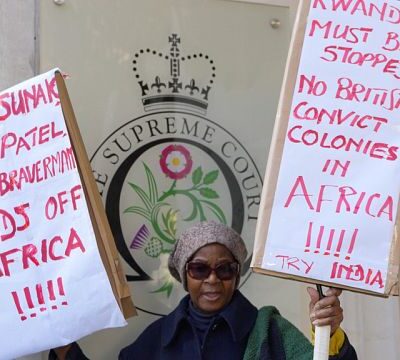 SUNAK
PATEL
BRAVERMAN
DS OFF
AFRICA
!!!!!
THE SUPREME COURT
RWAND
MUST B
STOPPE
NO BRITISH
CONVICT
COLONIES
IN
AFRICA
!!!!!
TRY INDIA